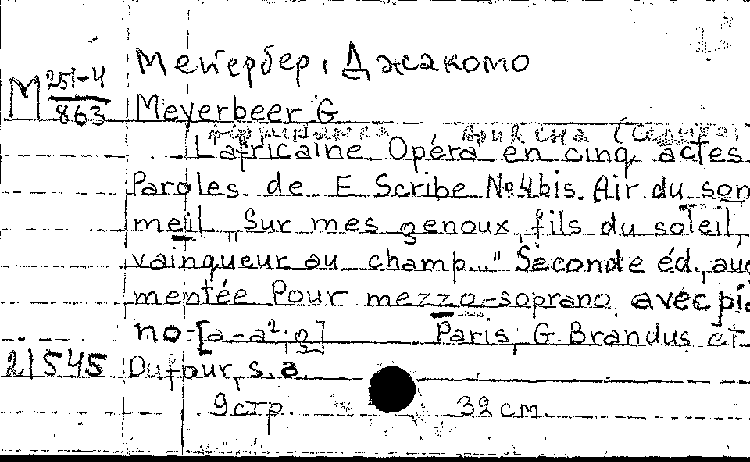 Мейербер, Джакомо
М 251-4
863
Meyerbeer G
L'africaine Opéra en cinq actes
Paroles de E Scribe №4bis. Air du som
meil „Sur mes genoux, fils du soleil,
vainqueur au champ..." Seconde éd., aug
mentée Pour mezzo-soprano avec pia
no [a-a²; 2] Paris, G Brandus et
21545 Dufour, s.a.
9 стр. 32 cm.